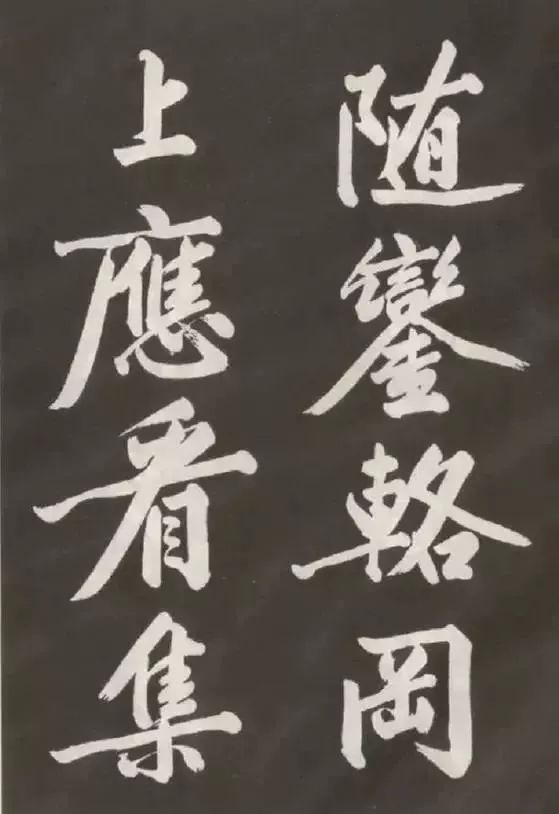 随鑾輅岡
上應看集